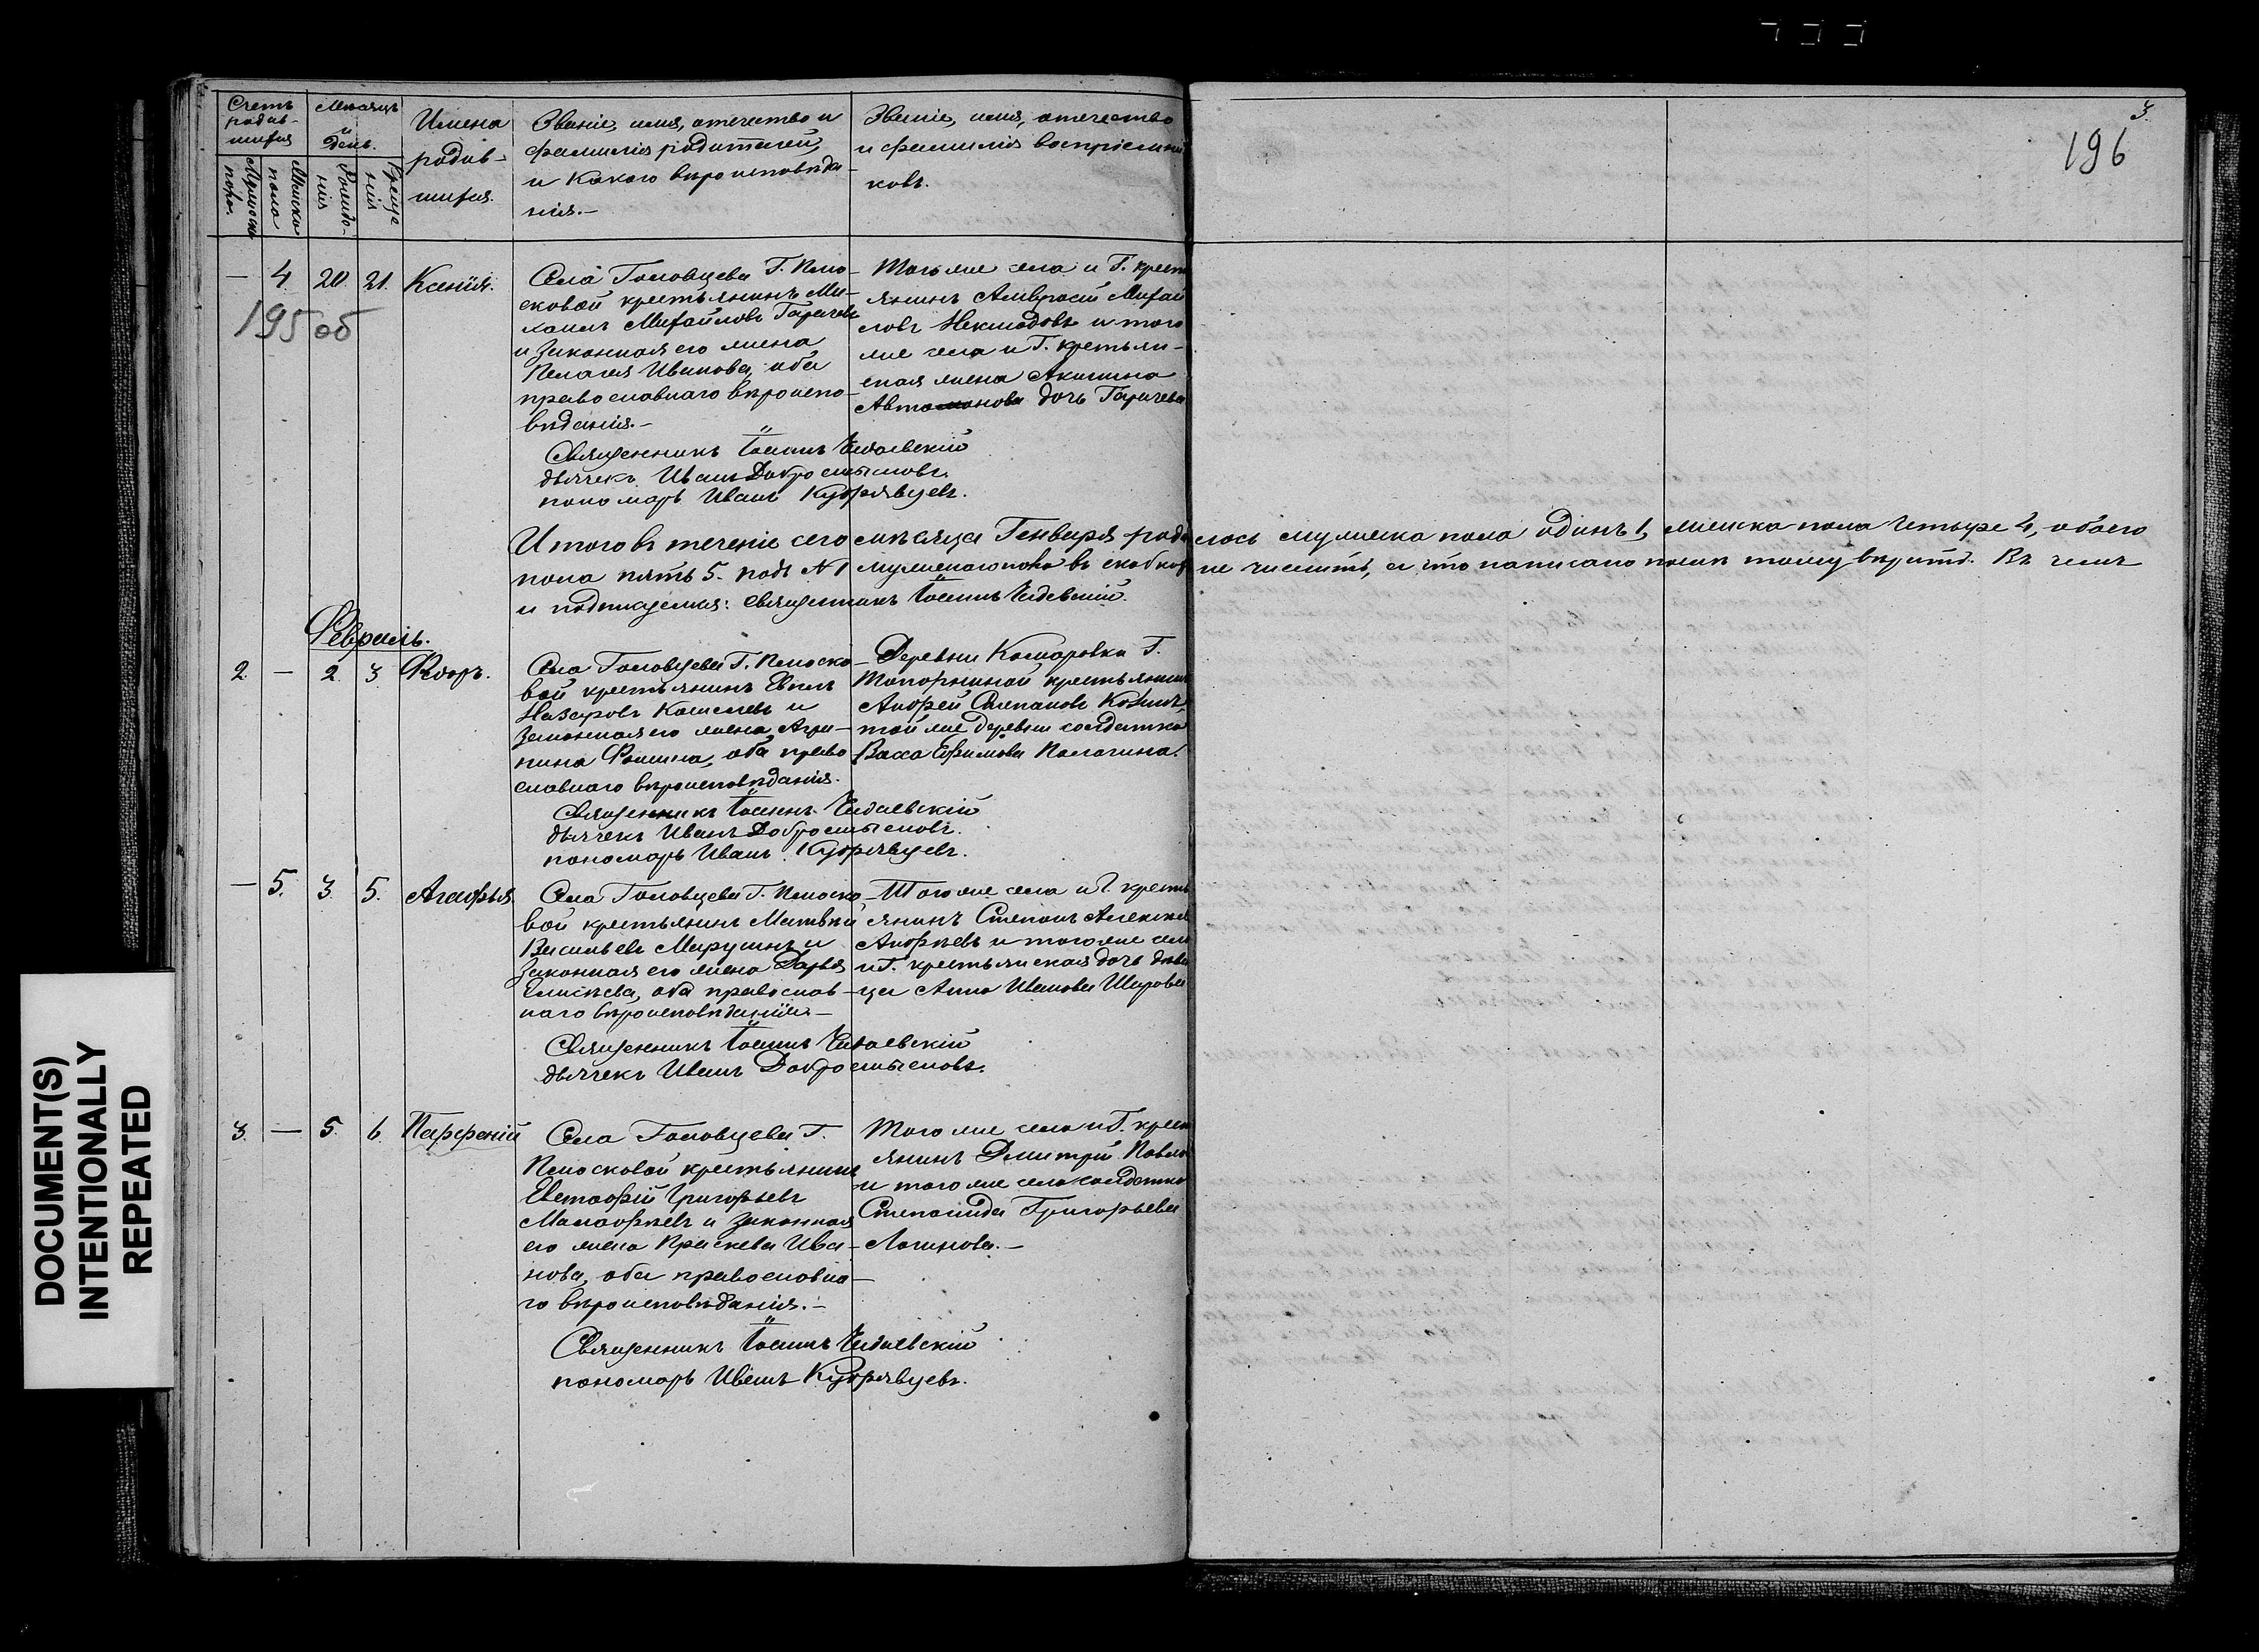 3.
196
Счетъ родив-шихся
Мѣсяцъ и день.
Имена родив-шихся.
Званіе, имя, отечество и фамилія родителей, и какого вѣроисповѣда-нія.—
Званіе, имя, отечество и фамилія воспріемни-ковъ.
Мужеска пола.
Женска пола
Рожде-нія
Креще нія
— 4. 20. 21. Ксенія.
195 об
Села Головцева Г. Плос-
ковой крестьянинъ Ми-
хаилъ Михайловъ Гарачевъ
и законная его жена
Пелагея Иванова, оба
православнаго вѣроиспо-
вѣданія.—
Того же села и Г. крест
янинъ Амвросій Михаи
ловъ и того
же села и Г. крестьян-
ская жена Акилина
Автомонова дочь Гарачева
Священникъ Іоаннъ
дьячекъ Иванъ Добросмысловъ.
пономарь Иванъ Кудрявцевъ.
Итого въ теченіе сего мѣсяца Генваря родилось мужеска пола одинъ 1, женска пола четыре 4, обоего
пола пять 5. подъ № 1 мужескаго пола въ скобкахъ не числить, а что написано тому вѣрить. Въ чемъ
и подписуемся: священникъ Іоаннъ
Февраль.
2. — 2. 3. Ѳеодоръ.
Села Головцева Г. Плоско-
вой крестьянинъ Евплъ
Назаровъ Кошелевъ и
законная его жена Агри-
пина Фомина, оба право
славнаго вѣроисповѣданія.
Деревни Комаровки Г.
Топорниной крестьянинъ
Андрей Степановъ
той же деревни солдатка
Васса Ефимова Палагина.
Священникъ Іоаннъ
дьячекъ Иванъ Добросмысловъ.
пономарь Иванъ Кудрявцевъ.
— 5. 3. 5. Агафья.
Села Головцева Г. Плоско-
вой крестьянинъ Матвѣй
Васильевъ Марушинъ и
законная его жена Дарья
Елисѣева, оба православ-
наго вѣроисповѣданія.—
Того же села и Г. кресть
янинъ Степанъ Алексѣев
Андрѣевъ и того же села
и Г. крестьянская дочь дѣви
ца Анна Иванова Широва
Священникъ Іоаннъ
дьячекъ Иванъ Добросмысловъ.
3. — 5. 6. Парфеній
Села Головцева Г.
Плосковой крестьянинъ
Евстафій Григорьевъ
Малафѣевъ и законная
его жена Праскева Ива-
нова, оба православна-
го вѣроисповѣданія.—
Того же села и Г. крест
янинъ Дмитрій Павло
и того же села солдатка
Степанида Григорьева
Логинова.—
Священникъ Іоаннъ
пономарь Иванъ Кудрявцевъ.
DOCUMENT(S)
INTENTIONALLY
REPEATED